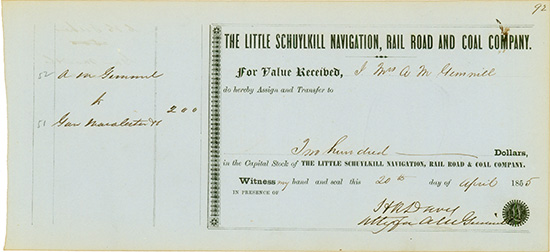 92
THE LITTLE SCHUYLKILL NAVIGATION, RAIL ROAD AND COAL COMPANY.
52 A M Gemmill
For Value Received, I Mrs A M Gemmill
to
200
do hereby Assign and Transfer to
51
Two hundred Dollars,
in the Capital Stock of THE LITTLE SCHUYLKILL NAVIGATION, RAIL ROAD & COAL COMPANY.
Witness my hand and seal this 20th day of April 1855
IN PRESENCE OF
Atty for A M Gemmill